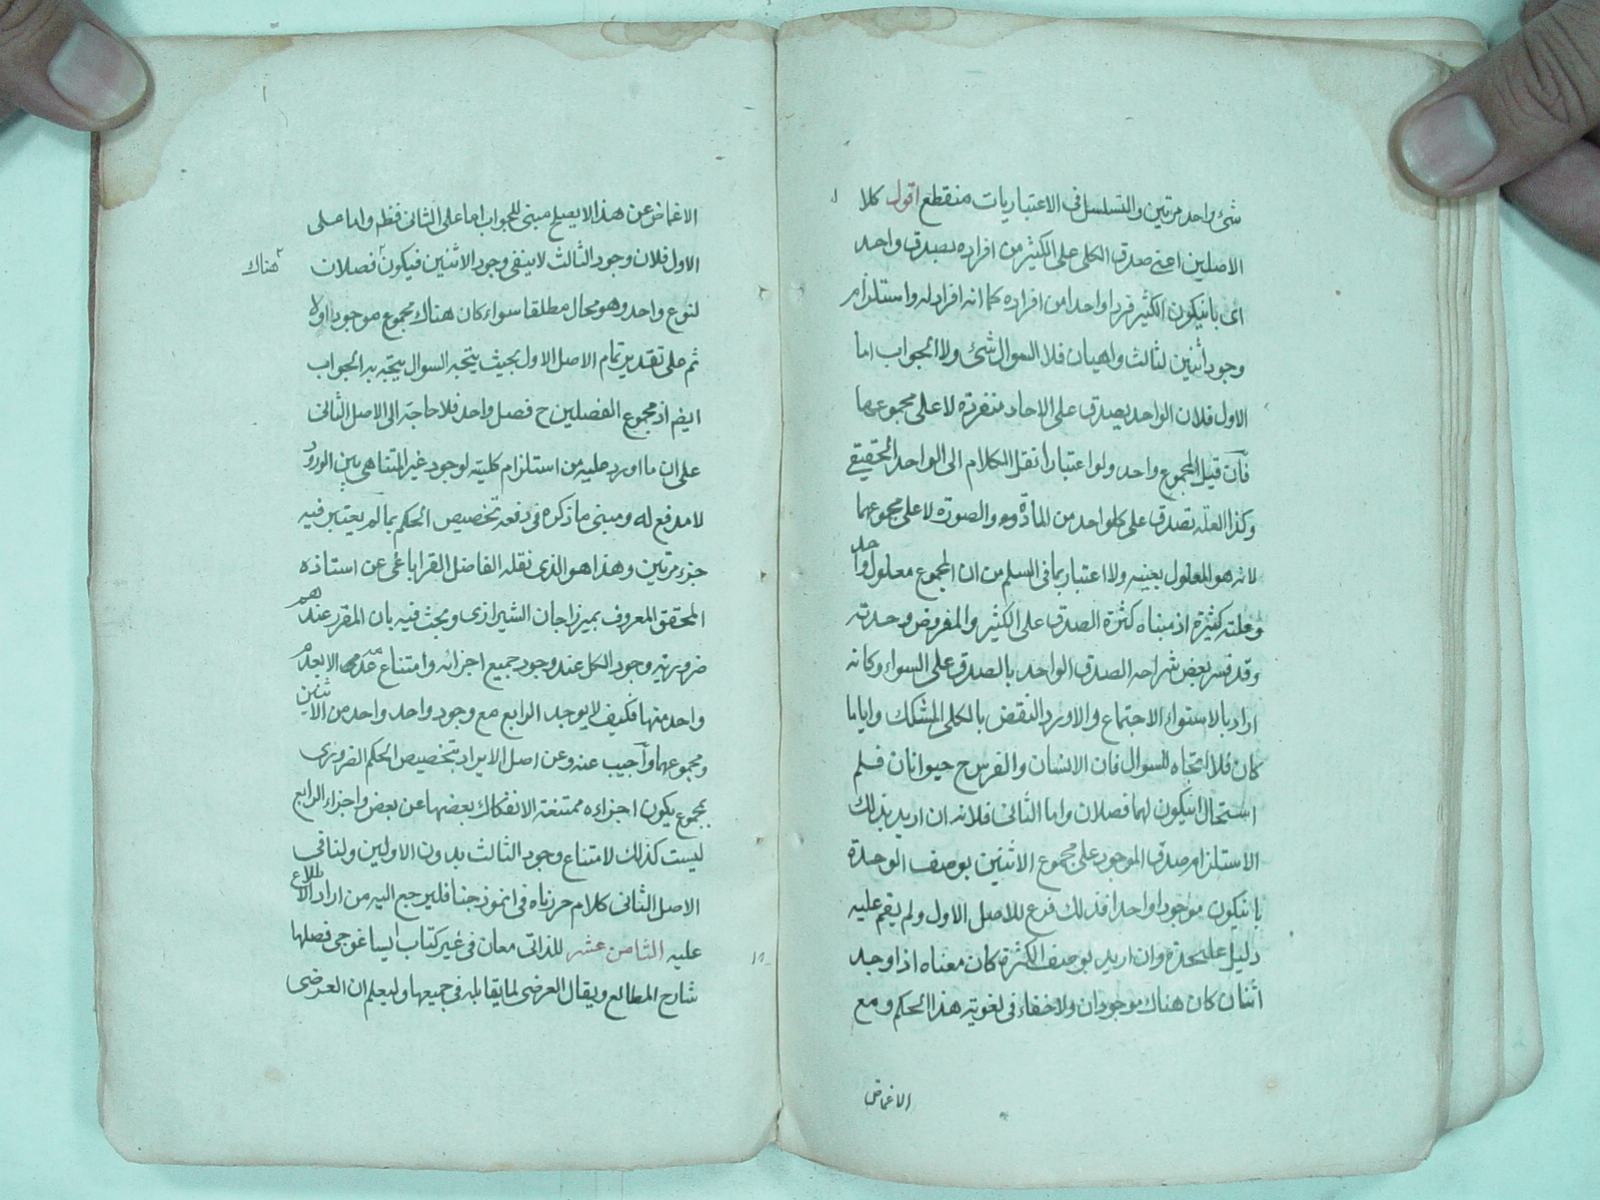 شئ واحد مرتين والتسلسل فى الاعتباريات منقطع اقول كلا
الاصلين اعنى صدق الكلى على الكثير من افراده بصدق واحد
اى بانيكون الكثير فردا واحدا من افراده كما انه افراد له واستلزام
وجود اثنين لثالث واهيان فلا السوال شئ ولا الجواب اما
الاول فلان الواحد يصدق على الاحاد منفردة لا على مجموعها
فان قيل المجموع واحد ولو اعتبارا نقل الكلام الى الواحد الحقيقى
وكذا العلة تصدق على كلواحد من المادة والصورة لا على مجموعهما
لانه هو المعلول بعينه ولا اعتبار بما فى السلم من ان المجموع معلول واحد
وعلته كثيرة اذ مبناه كثرة الصدق على الكثير والمفروض وحدته
وقد فسر بعض شراحه الصدق الواحد بالصدق على السواء وكانه
اراد بالاستواء الاجتماع والا ورد النقض بالكلى المشكك واياما
كان فلا اتجاه للسوال فان الانسان والفرس ح حيوانان فلم
استحال انيكون لهما فصلان واما الثانى فلانه ان اريد بذلك
الاستلزام صدق الموجود على مجموع الاثنين بوصف الوحدة
بانيكون موجودا واحدا فذلك فرع للاصل الاول ولم يقم عليه
دليل عليحدة وان اريد بوصف الكثرة كان معناه اذا وجد
اثنان كان هناك موجودان ولا خفاء فى لغوية هذا الحكم ومع
الاغماض
الاغماض عن هذا لا يصلح مبنى للجواب اما على الثانى فظ واما على
الاول فلان وجود الثالث لا ينفى وجود الاثنين فيكون فصلان
هناك
لنوع واحد وهو محال مطلقا سواء كان هناك مجموع موجود اولا
ثم على تقدير تمام الاصل الاول بحيث يتجه السوال يتجه به الجواب
ايضا اذ مجموع الفصلين ح فصل واحد فلا حاجة الى الاصل الثانى
على ان ما اورد عليه من استلزام كليته لوجود غير المتناهى بين الورود
لا مدفع له ومبنى ما ذكره فى دفعه تخصيص الحكم بما لم يعتبر فيه
جزء مرتين وهذا هو الذى نقله الفاضل القراباغى عن استاذه
المحقق المعروف بميرزا جان الشيرازى وبحث فيه بان المقرر عندهم
ضرورية وجود الكل عند وجود جميع اجزائه وامتناع عدمه الا بعدم
واحد منها فكيف لا يوجد الرابع مع وجود واحد واحد من الاثنين
ومجموعهما واجيب عنه وعن اصل الايراد بتخصيص الحكم الضرورى
بمجموع يكون اجزاءه ممتنعة الانفكاك بعضها عن بعض واجزاء الرابع
ليست كذلك لامتناع وجود الثالث بدون الاولين ولنا فى
الاصل الثانى كلام حررناه فى انموذجنا فليرجع اليه من اراد الاطلاع
عليه الثامن عشر للذاتى معان فى غير كتاب ايساغوجى فصلها
شارح المطالع ويقال العرضى لما يقابله فى جميعها وليعلم ان العرضى